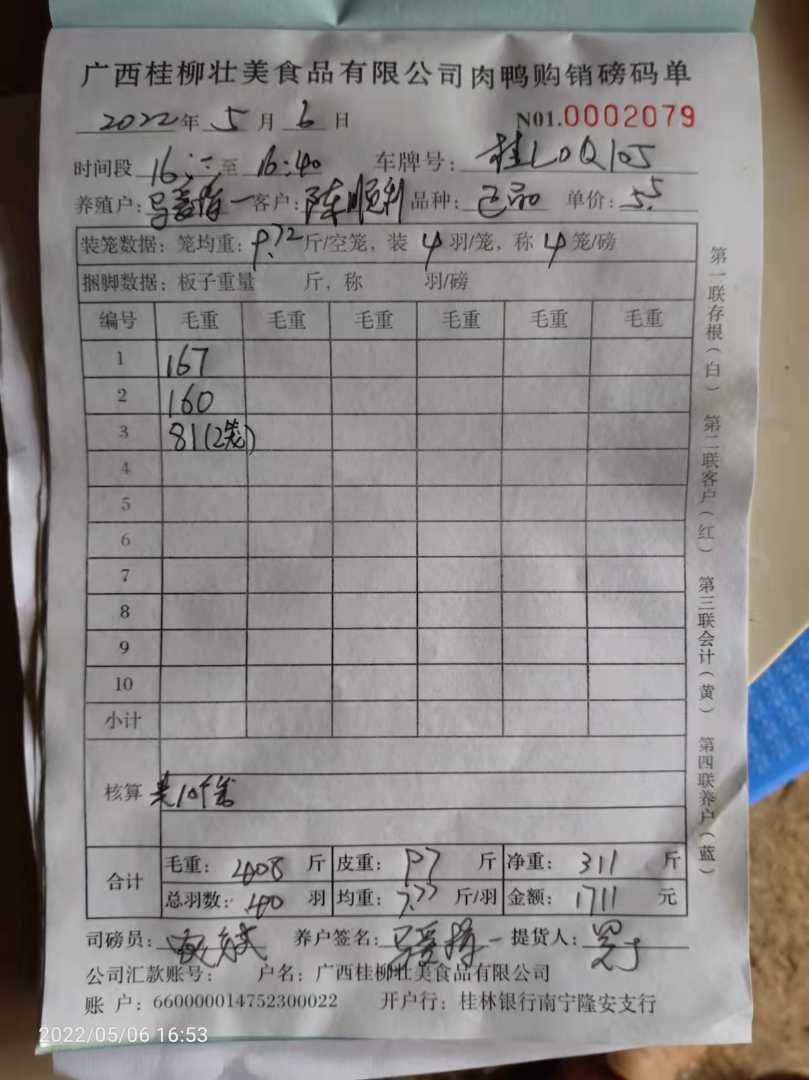 广西桂柳壮美食品有限公司肉鸭购销磅码单
2022年 5 月 6 日 N01.0002079
时间段 16: 至 16:40 车牌号: 桂L0Q105
养殖户: 客户: 陈顺利 品种: 单价: 5.5
装笼数据: 笼均重: 9.72 斤/空笼, 装 4 羽/笼, 称 4 笼/磅
捆脚数据: 板子重量 斤, 称 羽/磅
编号 毛重 毛重 毛重 毛重 毛重 毛重
1 167
2 160
3 81(2笼)
4
5
6
7
8
9
10
小计
核算 共10个笼
合计 毛重: 408 斤 皮重: 97 斤 净重: 311 斤
总羽数: 40 羽 均重: 7.77 斤/羽 金额: 1711 元
司磅员: 养户签名: 提货人:
公司汇款账号: 户名: 广西桂柳壮美食品有限公司
账 户: 660000014752300022 开户行: 桂林银行南宁隆安支行
第一联存根(白) 第二联客户(红) 第三联会计(黄) 第四联养户(蓝)
2022/05/06 16:53